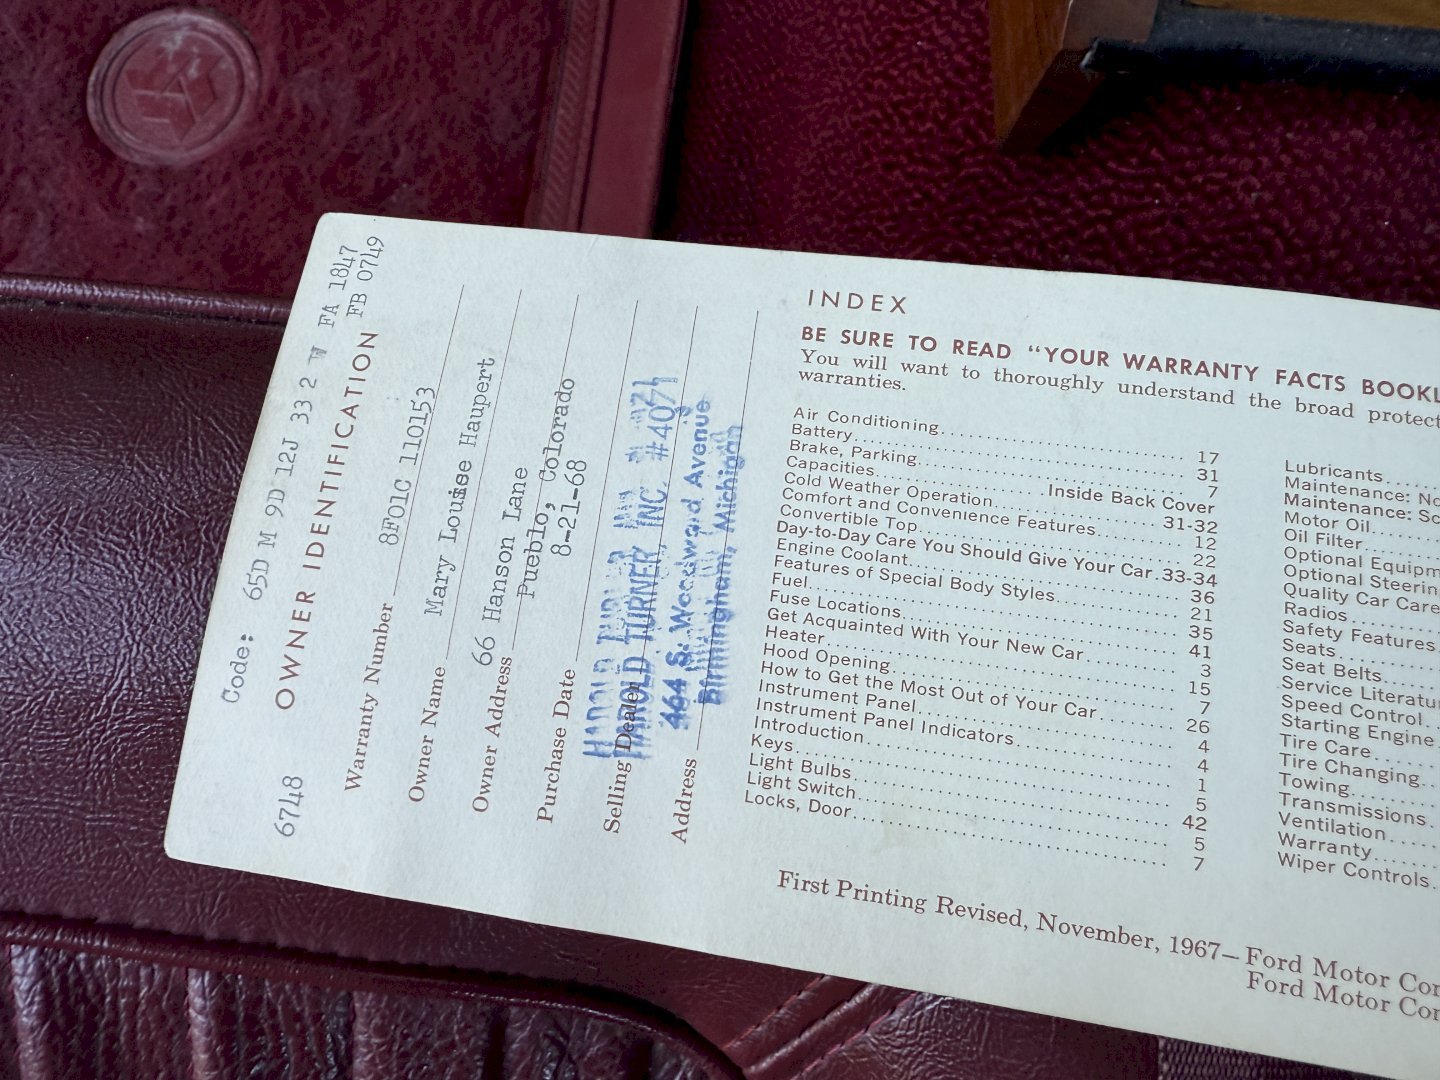 Code: 65D M 9D 12J 33 2 W FA 1847
FB 0749
6748 OWNER IDENTIFICATION
Warranty Number 8F01C 110153
Owner Name Mary Louise Haupert
Owner Address 66 Hanson Lane
Pueblo, Colorado
Purchase Date 8-21-68
Selling Dealer HAROLD TURNER, INC. #407
Address 464 S. Woodward Avenue
Birmingham, Michigan
INDEX
BE SURE TO READ “YOUR WARRANTY FACTS
You will want to thoroughly understand the broad
warranties.
Air Conditioning 17
Battery 31
Brake, Parking 7
Capacities Inside Back Cover
Cold Weather Operation 31-32
Comfort and Convenience Features 12
Convertible Top 22
Day-to-Day Care You Should Give Your Car 33-34
Engine Coolant 36
Features of Special Body Styles 21
Fuel 35
Fuse Locations 41
Get Acquainted With Your New Car 3
Heater 15
Hood Opening 7
How to Get the Most Out of Your Car 26
Instrument Panel 4
Instrument Panel Indicators 4
Introduction 1
Keys 5
Light Bulbs 42
Light Switch 5
Locks, Door 7
Lubricants
Maintenance:
Maintenance:
Motor Oil
Oil Filter
Optional
Optional
Quality Car Care
Radios
Safety Features
Seats
Seat Belts
Service
Speed Control
Starting Engine
Tire Care
Tire Changing
Towing
Transmissions
Ventilation
Warranty
Wiper Controls
First Printing Revised, November, 1967—Ford Motor
Ford Motor